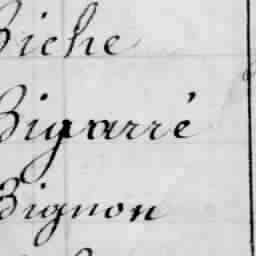 Biche
Bigarré
Bignon